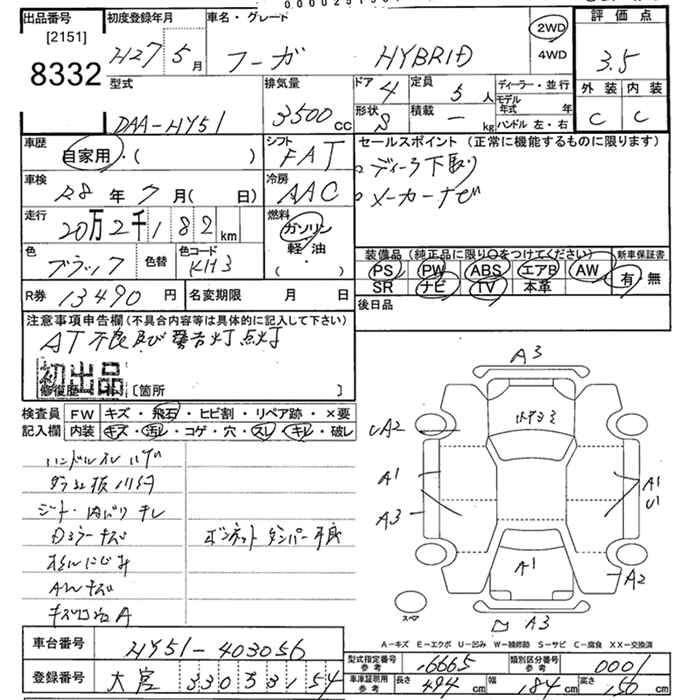 出品番号
[2151]
8332
初度登録年月
H27 5月
車名・グレード
フーガ HYBRID
2WD
4WD
評価点
3.5
外装 内装
C C
型式
DAA-HY51
排気量
3500cc
ドア 4
定員 5人
形状 S
積載 ー kg
ディーラー・並行
モデル年式 年
ハンドル 左・右
車歴
自家用・( )
シフト
FAT
セールスポイント (正常に機能するものに限ります)
ディーラ下取り
メーカーナビ
車検
R8年7月( 日)
冷房
AAC
走行
20万2千182km
燃料
ガソリン
軽・油
( ・ )
色
ブラック
色替
色コード
KH3
装備品 (純正品に限り○をつけてください)
新車保証書
PS PW ABS エアB AW
SR ナビ TV 本革
有・無
R券 13490円
名変期限 月 日
後日品
注意事項申告欄(不具合内容等は具体的に記入して下さい)
AT不良及び警告灯点灯
初出品
修復歴 [箇所 ]
検査員 FW キズ・飛石・ヒビ割・リペア跡・×要
記入欄 内装 キズ・汚レ・コゲ・穴・スレ・キレ・破レ
ハンドルスレ ハゲ
シート・内バリ キレ
ボンネットダンパー不良
AWキズ
A3
UA2
A1
A3
A1
U1
A1
A2
A3
スペア
A-キズ E-エクボ U-凹み W-補修跡 S-サビ C-腐食 XX-交換済
車台番号 HY51-403056
登録番号 大宮 330 53154
型式指定番号 参考 16665
類別区分番号 参考 0001
車庫証明用 参考 長さ 494cm 幅 184cm 高さ 150cm